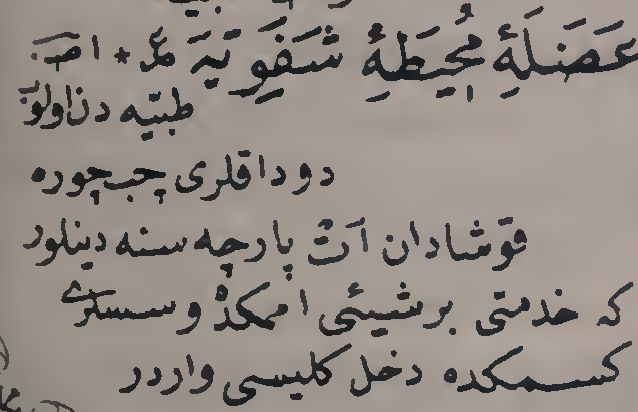 عَضَلَهِٔ مُحِيَطَهِٔ شَفَوِيَّهَ مر * اص
طبیّه دن اولوب
دوداقلری چپ چوره
قوشادان اَتْ پارچه سنه دینلور
که خدمتی برشیئی امْمكدْ وسسلرے
كسمكده دخل كلیسی واردر